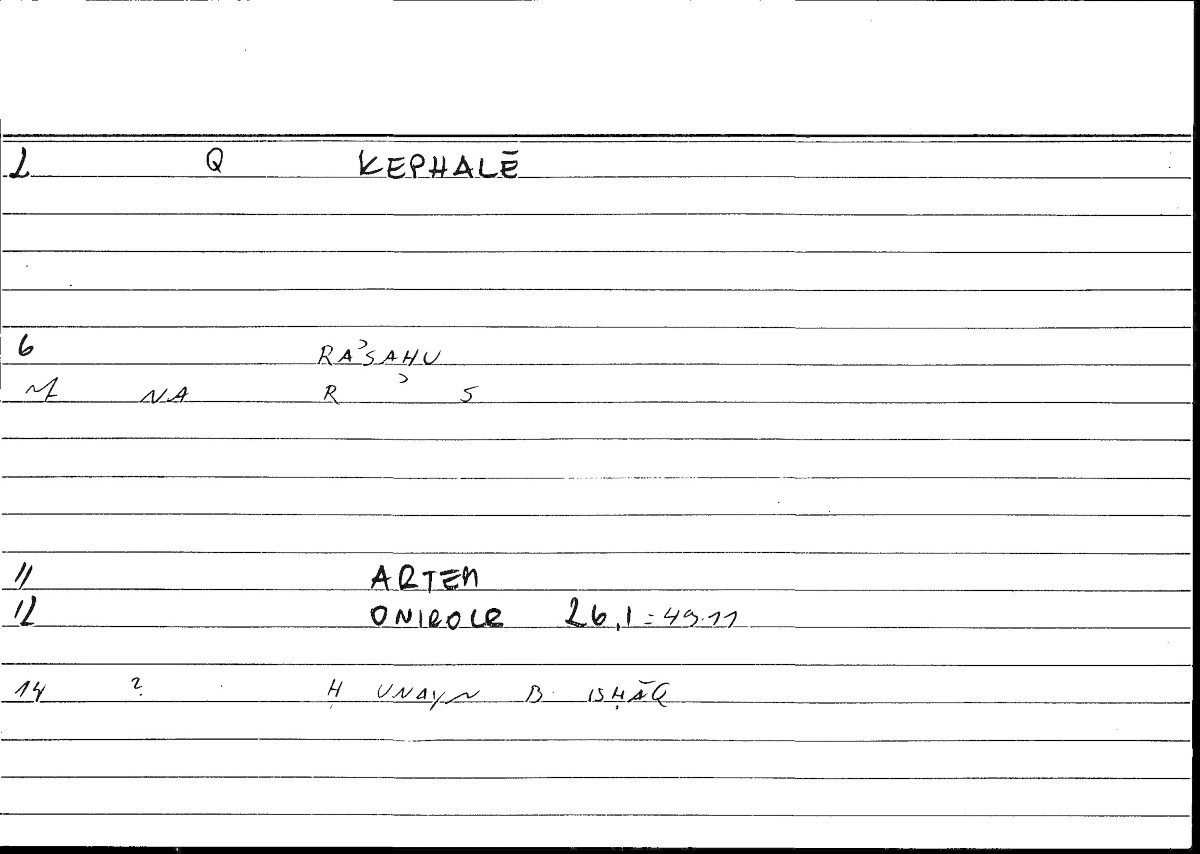 2 Q KEPHALĒ
6 RAʾSAHU
NA R ʾ S
11 ARTEM
12 ONIROCR 26,1 = 49.11
14 ? Ḥ UNAYN B. ISḤĀQ